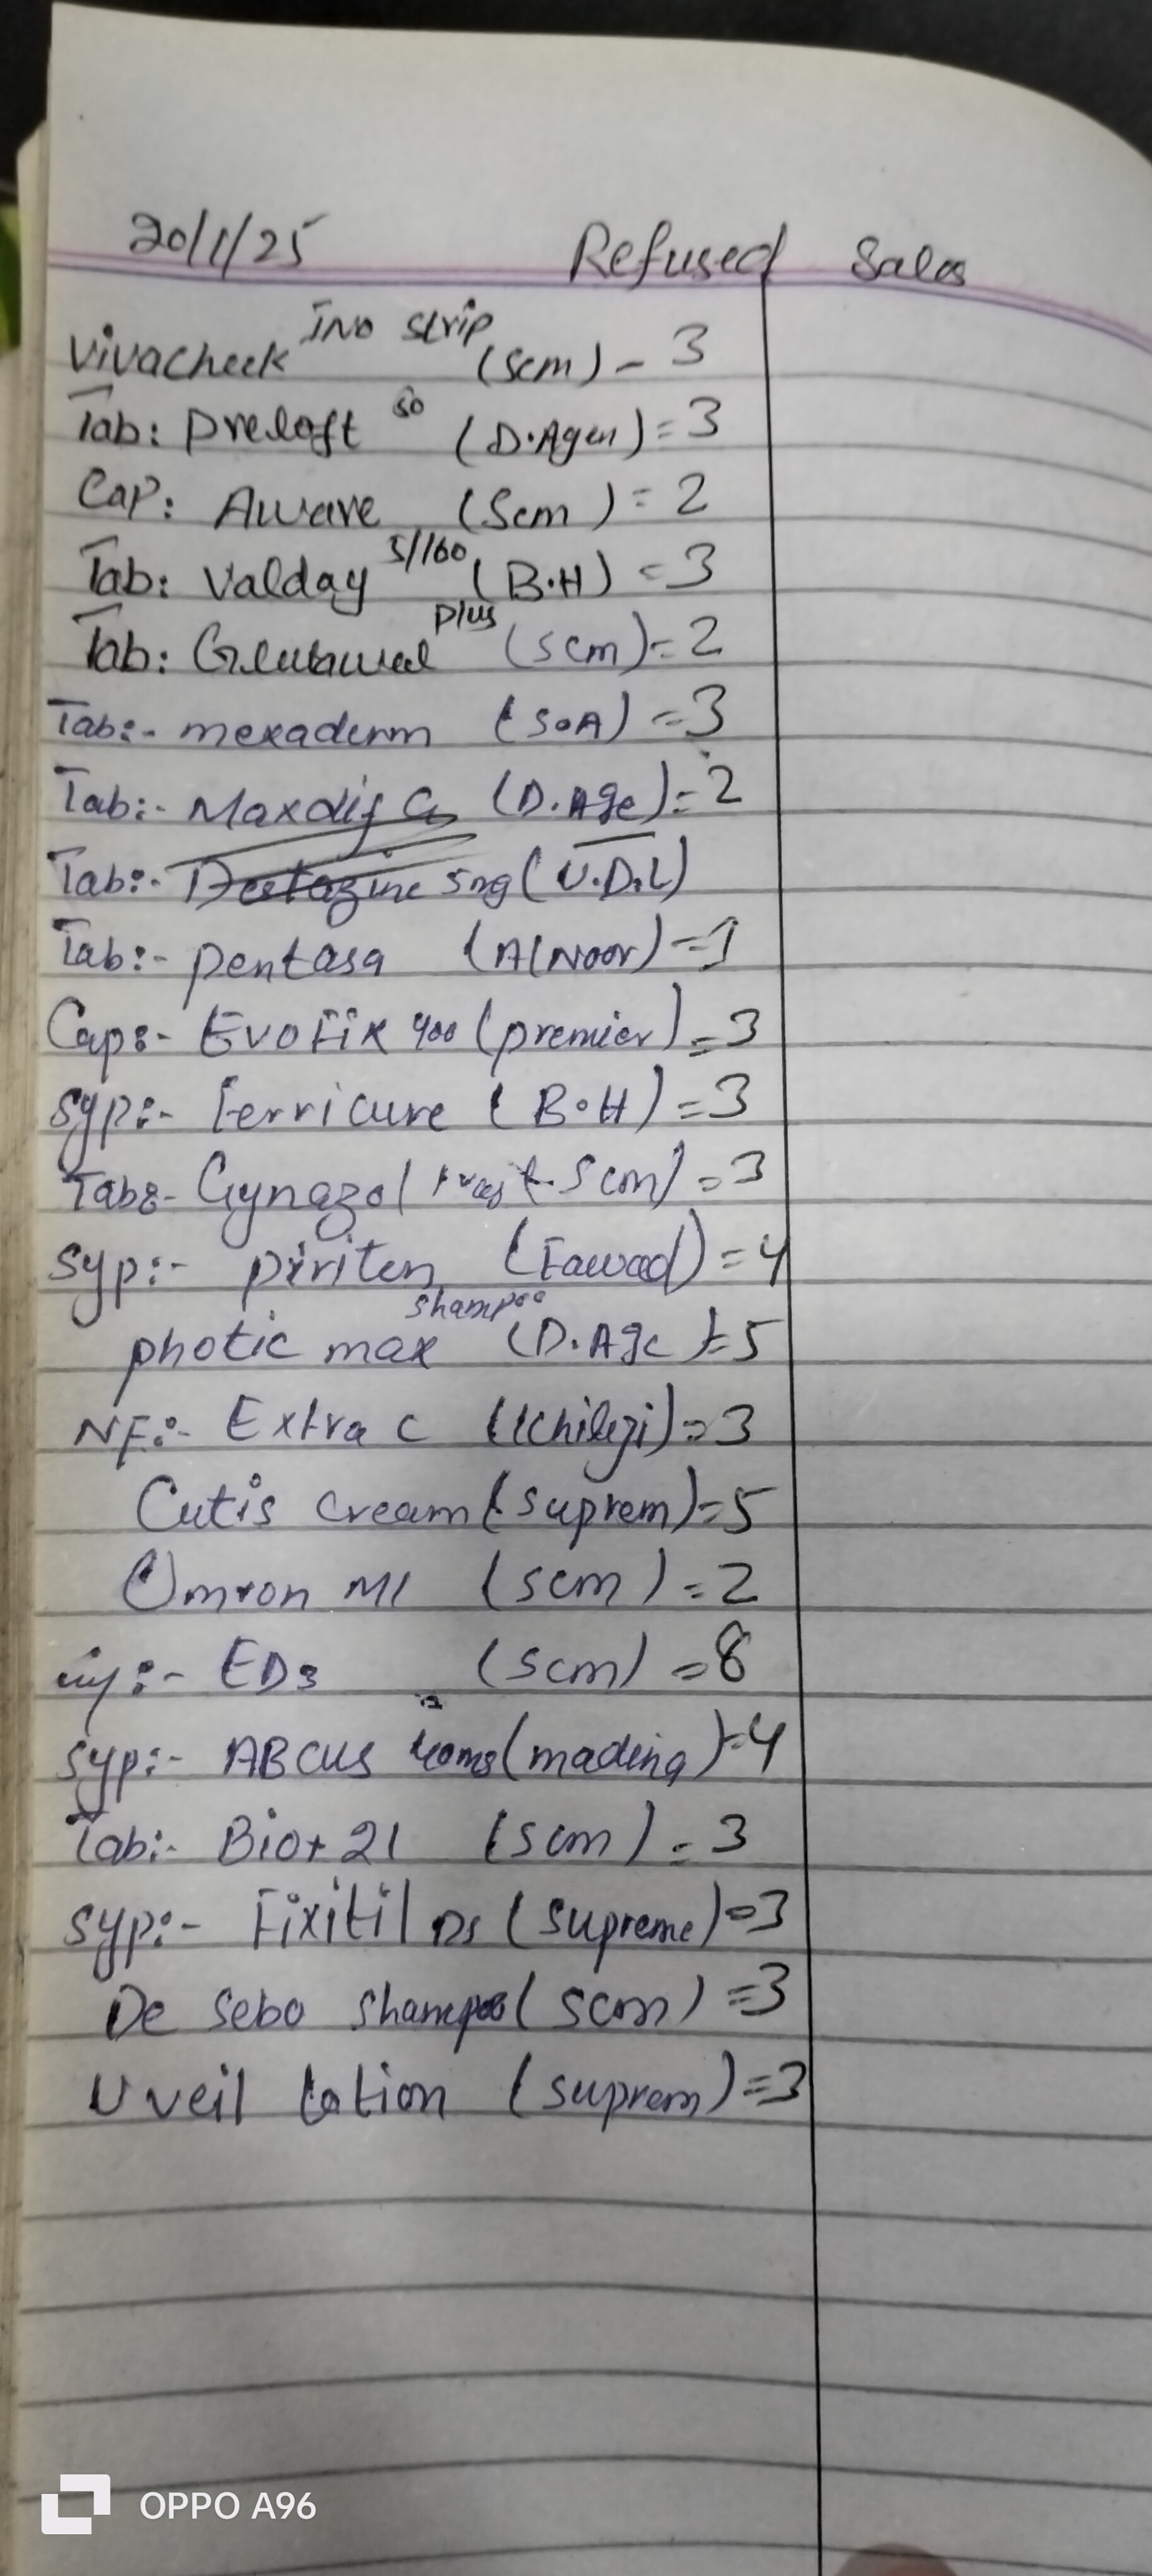 20/1/25 Refused Sales
Vivacheck INO Strip (Scm) - 3
Tab: Preloft 50 (D.Agen) = 3
Cap: Aware (Scm) = 2
Tab: Valday 5/160 (B.H) = 3
Tab: plus (Scm) = 2
Tab:- mexaderm (S.A) = 3
Tab:- Maxdif G (D.Age) = 2
Tab:- 5mg (U.D.L)
Tab:- Pentasa (Al Noor) = 1
Cap:- Evofix 400 (premier) = 3
Syp:- Ferricure (B.H) = 3
Tab:- Gynazol (Scm) = 3
Syp:- piriten (Fawad) = 4
photic max shampoo (D.Age) = 5
NF:- Extra C = 3
Cutis Cream (Suprem) = 5
Omron M1 (Scm) = 2
inj:- ED3 (Scm) = 8
Syp:- ABCUS (madina) = 4
Tab:- Biot 21 (Scm) = 3
Syp:- Fixitil DS (Supreme) = 3
De Sebo Shampoo (Scm) = 3
U veil lotion (Suprem) = 3
OPPO A96